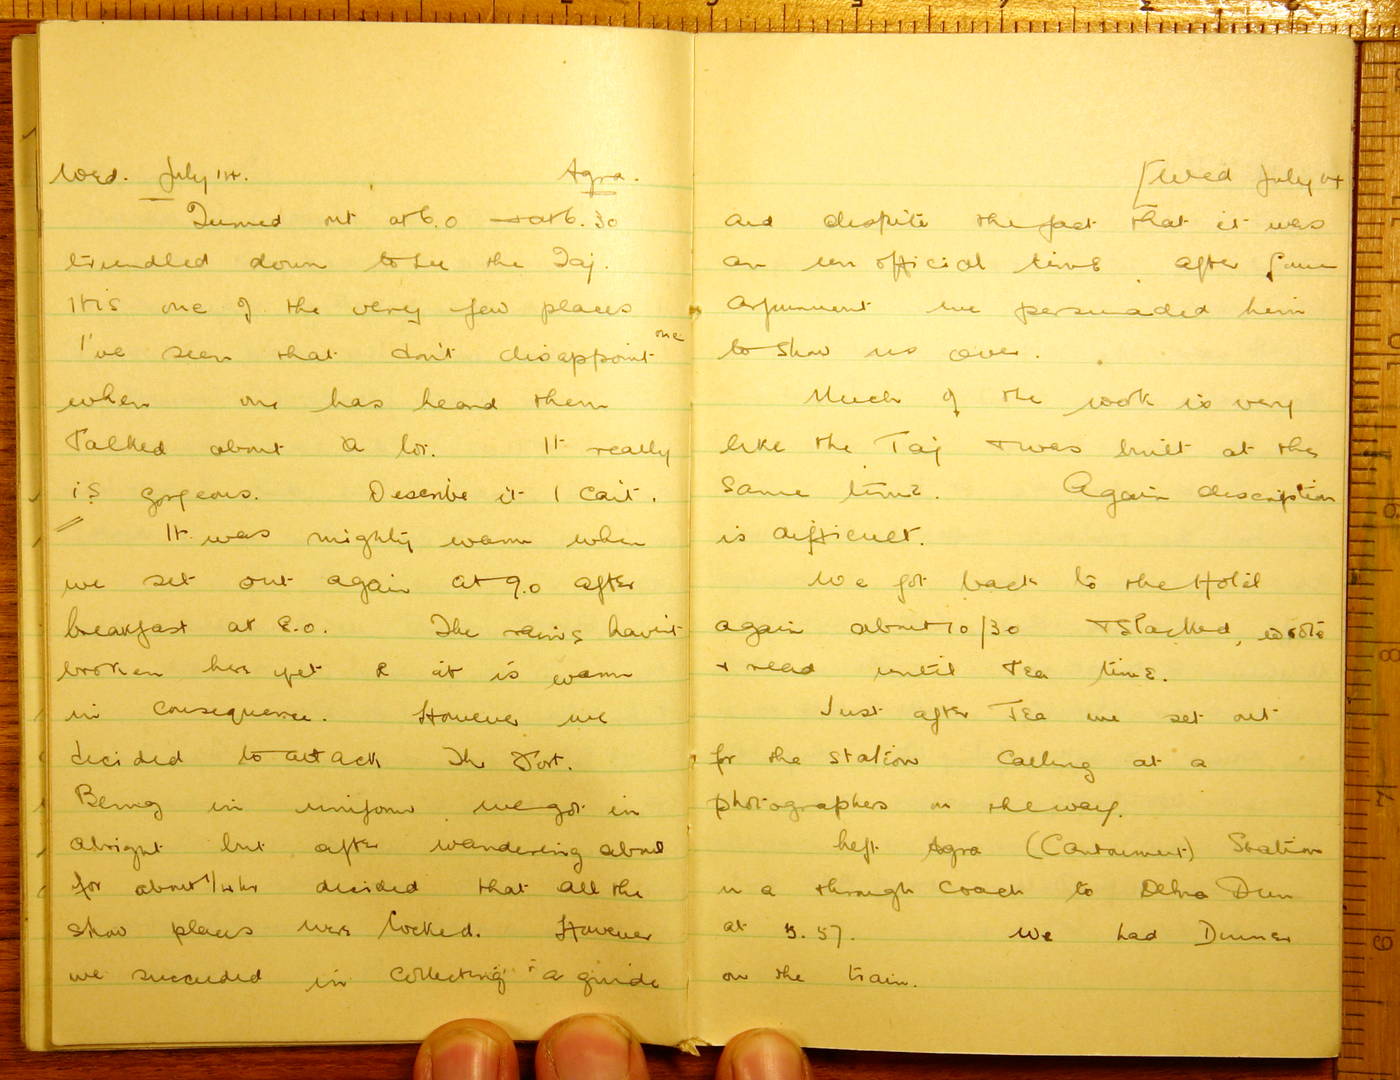 Wed. July 14. Agra.
Turned out at 6.0 + at 6.30
trundled down to see the Taj.
It is one of the very few places
I've seen that don't disappoint one
when one has heard them
talked about a lot. It really
is gorgeous. Describe it I can't.
It was mighty warm when
we set out again at 9.0 after
breakfast at 8.0. The rains haven't
broken here yet & it is warm
in consequence. However we
decided to attack the Fort.
Being in uniform we got in
alright but after wandering about
for about 1/4 hr decided that all the
show places were locked. However
we succeeded in collecting a guide
[Wed July 14
and despite the fact that it was
an un official time after some
argument we persuaded him
to show us over.
Much of the work is very
like the Taj + was built at the
same time. Again description
is difficult.
We got back to the Hotel
again about 10/30 + slacked, wrote
+ read until Tea time.
Just after Tea we set out
for the station calling at a
photographers on the way.
Left Agra (Cantonment) Station
in a through coach to Dehra Dun
at 5.57. We had Dinner
on the train.